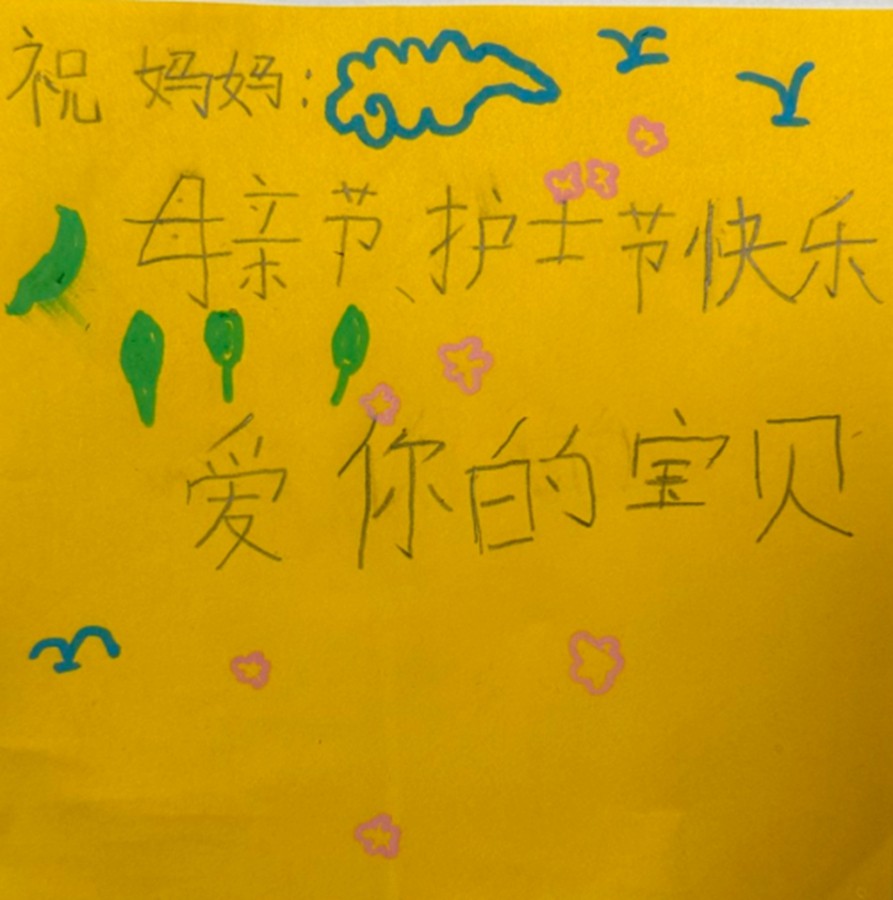 祝妈妈：
母亲节、护士节快乐
爱你的宝贝